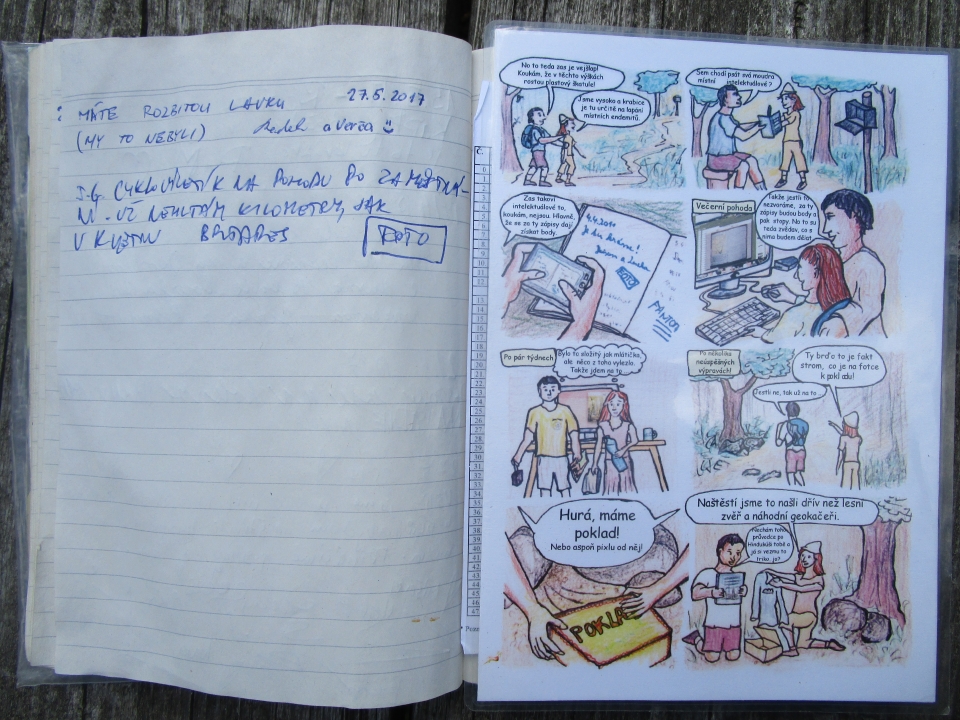 : MÁTE ROZBITOU LAVKU 27.5.2017
(MY TO NEBYLI) Radek a Verča
J.G. CYKLOVÝLET K NA POHODU PO
UŽ NEHLTÁM KILOMETRY, JAK
V KVĚTNU
FOTO
No to teda zas je vejšlap!
Koukám, že v těchto výškách
rostou plastový škatule!
Jsme vysoko a krabice
je tu určitě na lapání
místních endemitů.
Sem chodí psát svá moudra
místní intelektuálové?
Zas takoví
intelektuálové to,
koukám, nejsou. Hlavně,
že se za ty zápisy dají
získat body.
4.4.2010
Je den krásný!
a
PANTOS
Večerní pohoda
Takže jestli to
nezvoráme, za ty
zápisy budou body a
pak stopy. No to su
teda zvědav, co s
nima budem dělat.
Po pár týdnech
Bylo to složitý jak mlátička,
ale něco z toho vylezlo.
Takže jdem na to.
Po několika
neúspěšných
výpravách!
Ty brďo to je fakt
strom, co je na fotce
k pokladu!
Jestli ne, tak už na to...
Hurá, máme
poklad!
Nebo aspoň pixlu od něj!
POKLAD
Naštěstí jsme to našli dřív než lesní
zvěř a náhodní geokačeři.
Nechám toho
průvodce po
Hindukúši tobě a
já si vezmu to
triko, jo?
Č.
6
7
8
9
10
11
12
13
14
15
16
17
18
19
20
21
22
23
24
25
26
27
28
29
30
31
32
33
34
35
36
37
38
39
40
41
42
43
44
45
46
47
* Pozn